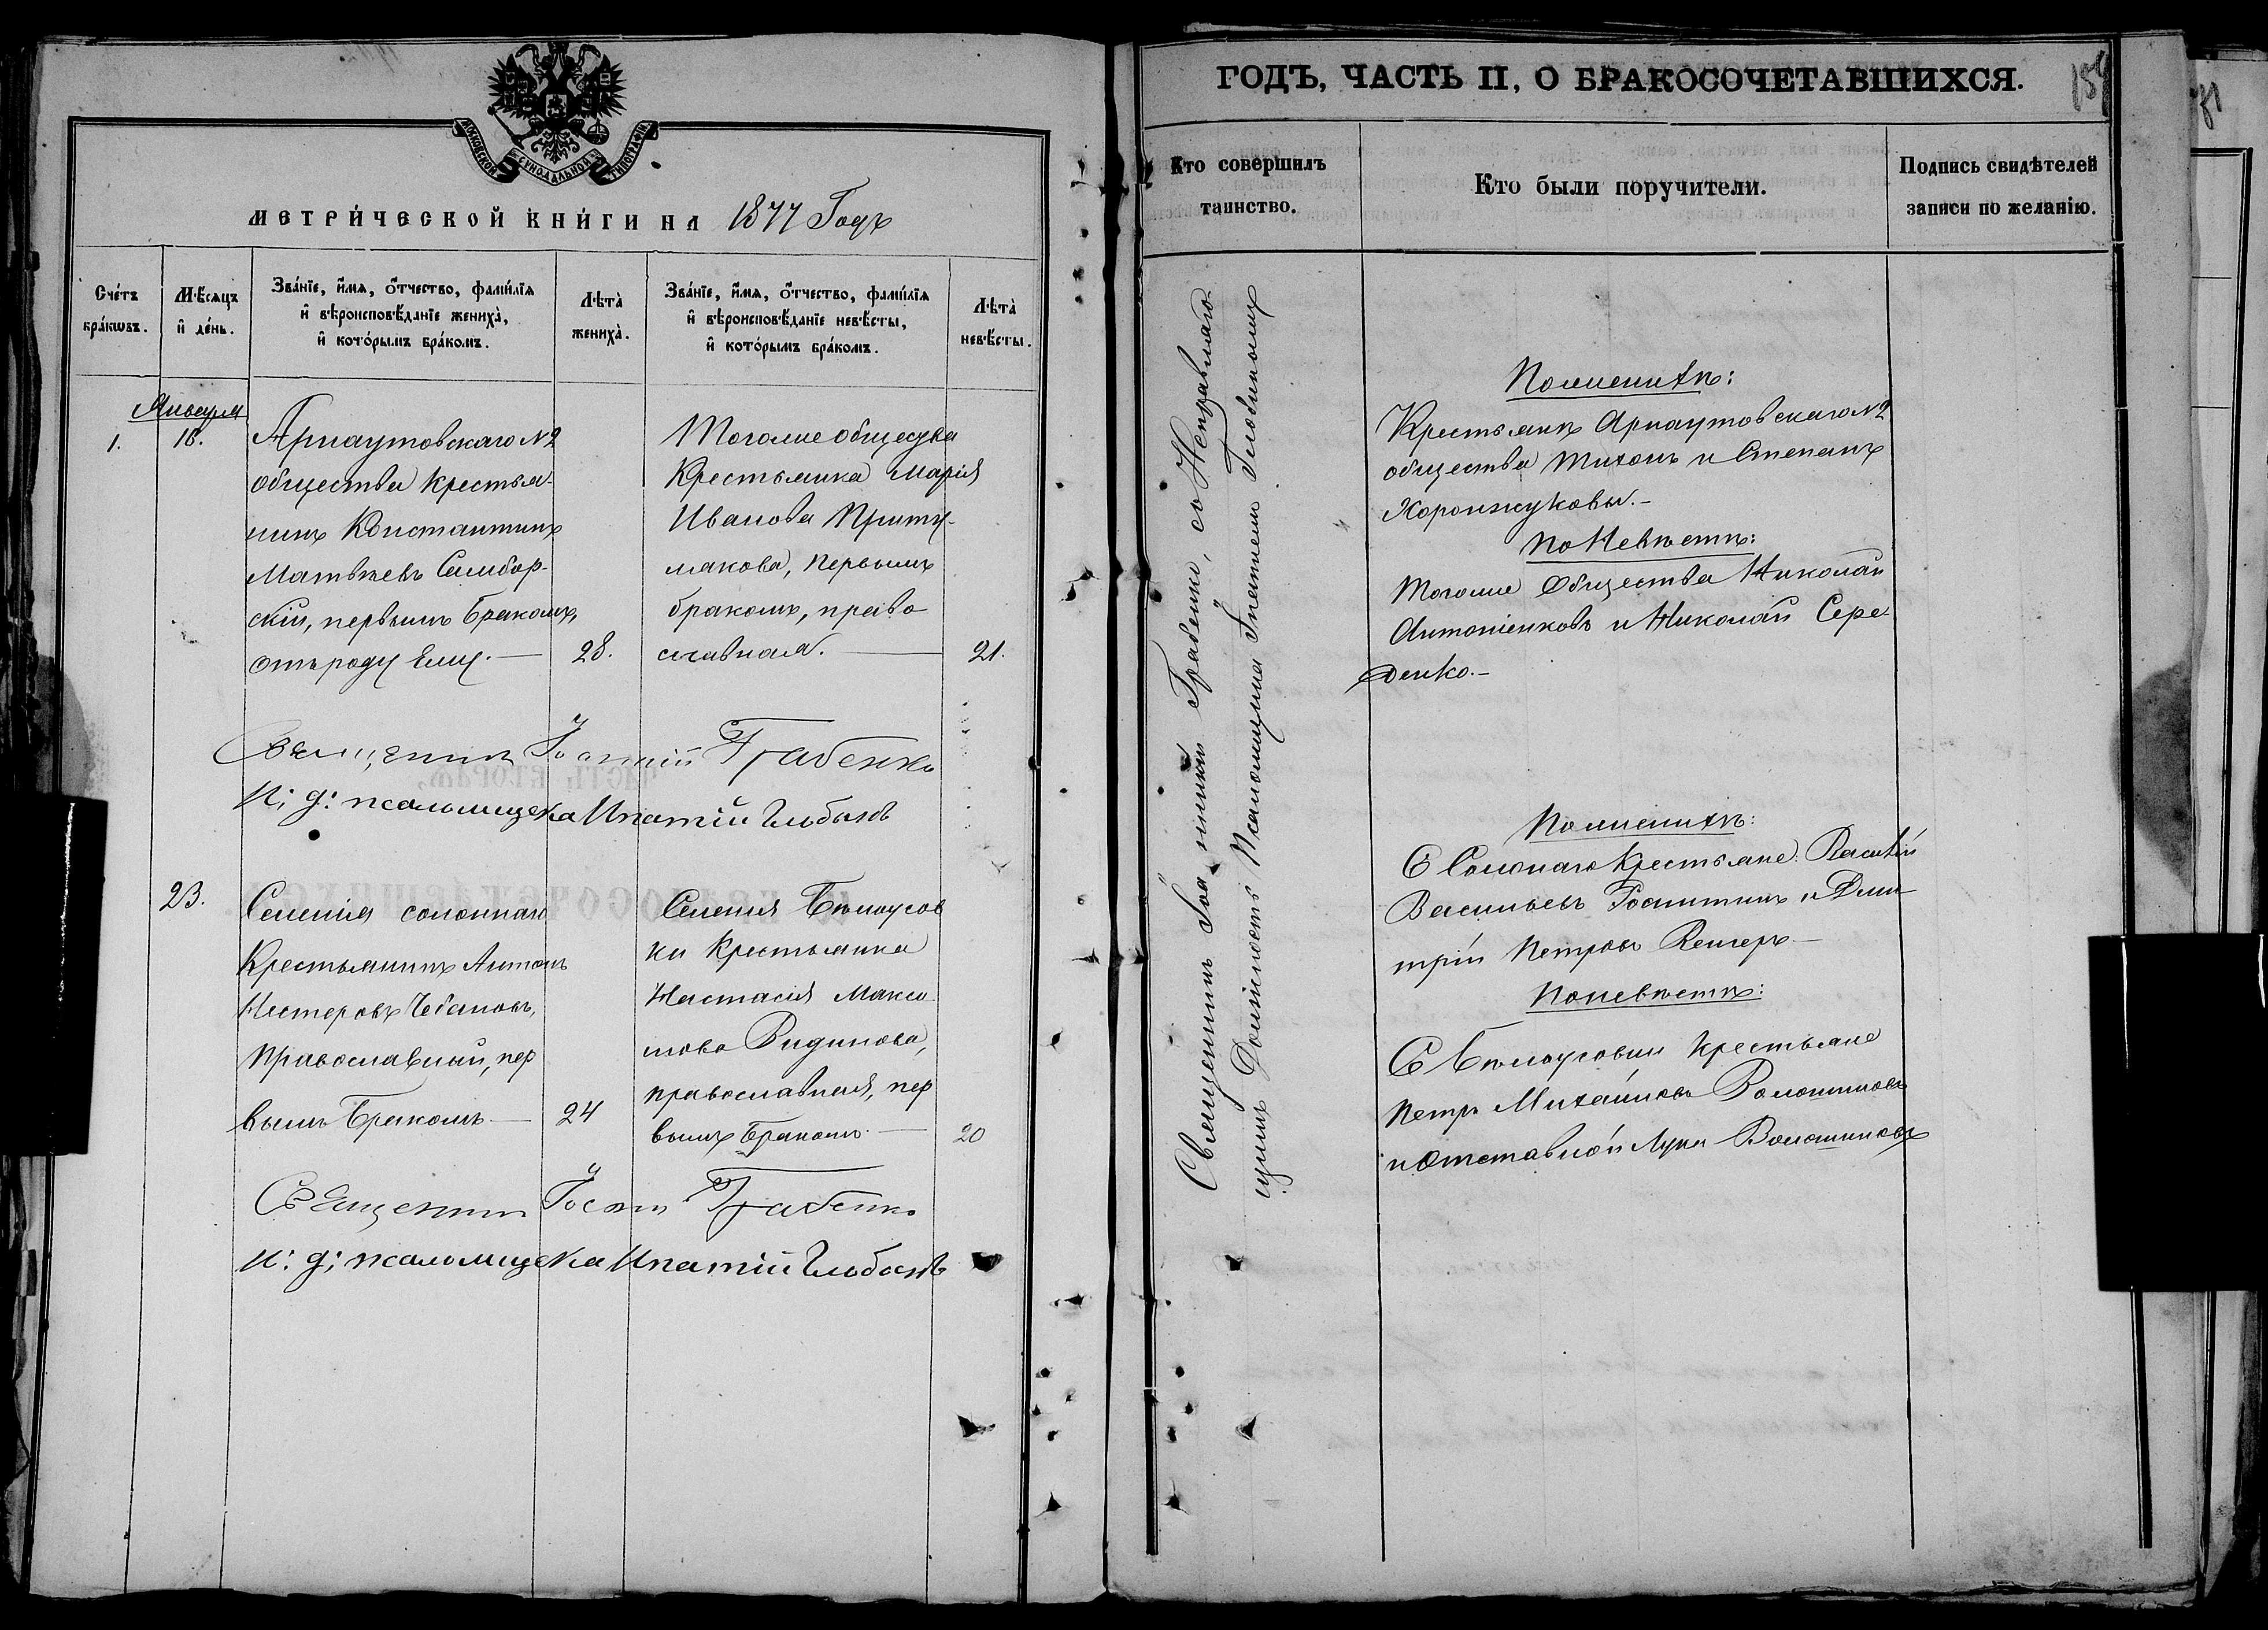 МОСКОВСКОЙ СУНОДАЛЬНОЙ ТИПОГРАФІИ
МЕТРИ́ЧЕСКОЙ КНИ́ГИ НА 1877 Годъ
Сче́тъ
бра́кωвъ.
Мѣ́сяцъ
и҆ де́нь.
Зва́нїе, и҆́мѧ, ѻ҆́тчество, фами́лїѧ
и҆ вѣроисповѣ́данїе жениха̀,
и҆ кото́рымъ бра́комъ.
Лѣта̀
жениха̀.
Зва́нїе, и҆́мѧ, ѻ҆́тчество, фами́лїѧ
и҆ вѣроисповѣ́данїе невѣ́сты,
и҆ кото́рымъ бра́комъ.
Лѣта̀
невѣ́сты.
Января
1.
16.
Арнаутовскаго №2
общества крестья-
нинъ Константинъ
Матвѣевъ Самбор-
скій, первымъ бракомъ,
отъ роду ему. — 28.
Тогоже общества
Крестьянка Марія
Иванова Приту-
лякова, первымъ
бракомъ, право
славная. — 21.
Священникъ Іоанній Грабенко
И: д: псаломщика Ипатій Глобинъ
23.
Селенія солоннаго
Крестьянинъ Антонъ
Нестеровъ Чебановъ,
Православный, пер
вымъ Бракомъ — 24
Селенія Бѣлоусов
ки Крестьянка
Настасія Макси
мова Видинова,
православная, пер
вымъ Бракомъ. — 20
Священникъ Іоанн Грабенко
И: д: псаломщика Ипатій Глобинъ
ГОДЪ, ЧАСТЬ II, О БРАКОСОЧЕТАВШИХСЯ.
Кто совершилъ
таинство.
Кто были поручители.
Подпись свидѣтелей
записи по желанію.
Священникъ Іоанникій Грабенко, со Исправляю-
щимъ Должность Псаломщика Ипатіемъ Глобинымъ
Пожениху:
Крестьянъ Арнаутовскаго №2
общества Тихонъ и Степанъ
Хоронжуковы.—
По Невѣстѣ:
Тогоже Общества Николай
Антоненковъ и Николай Сере
денко.—
Пожениху:
С Солонаго Крестьяне: Василій
Васильевъ и Дми
трій Петровъ —
Поневѣстѣ:
С Бѣлоусовки крестьяне
Петръ Михайловъ Волошиновъ
и Отставной Лука Волошиновъ